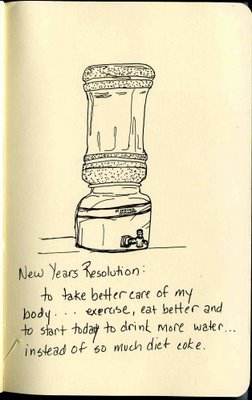 New Years Resolution:
to take better care of my
body... exercise, eat better and
to start today to drink more water...
instead of so much diet coke.